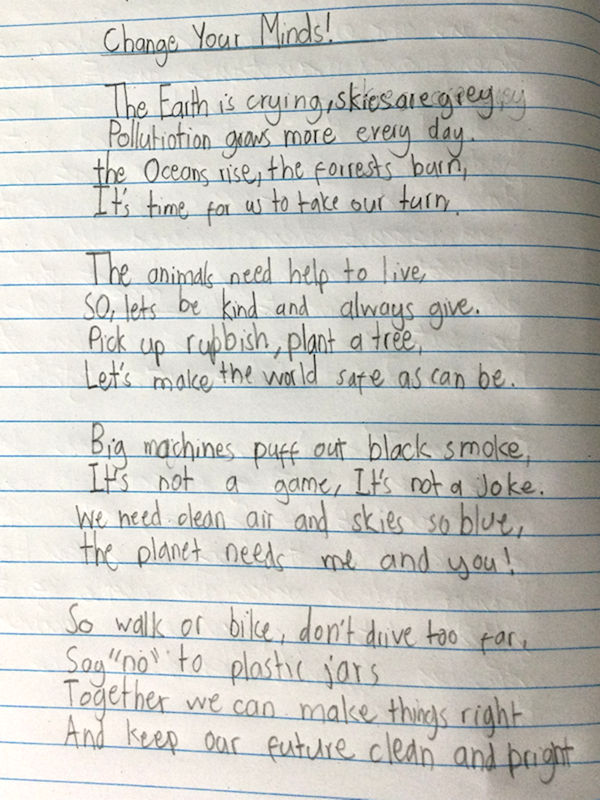 Change Your Minds!
The Earth is crying, skies are grey,
Pollutiotion grows more every day.
the Oceans rise, the forrests burn,
It's time for us to take our turn.
The animals need help to live,
SO, lets be kind and always give.
Pick up rubbish, plant a tree,
Let's make the world safe as can be.
Big machines puff out black smoke,
It's not a game, It's not a Joke.
We need clean air and skies so blue,
the planet needs me and you!
So walk or bike, don't drive too far,
Say "no" to plastic jars
Together we can make things right
And keep our future clean and bright